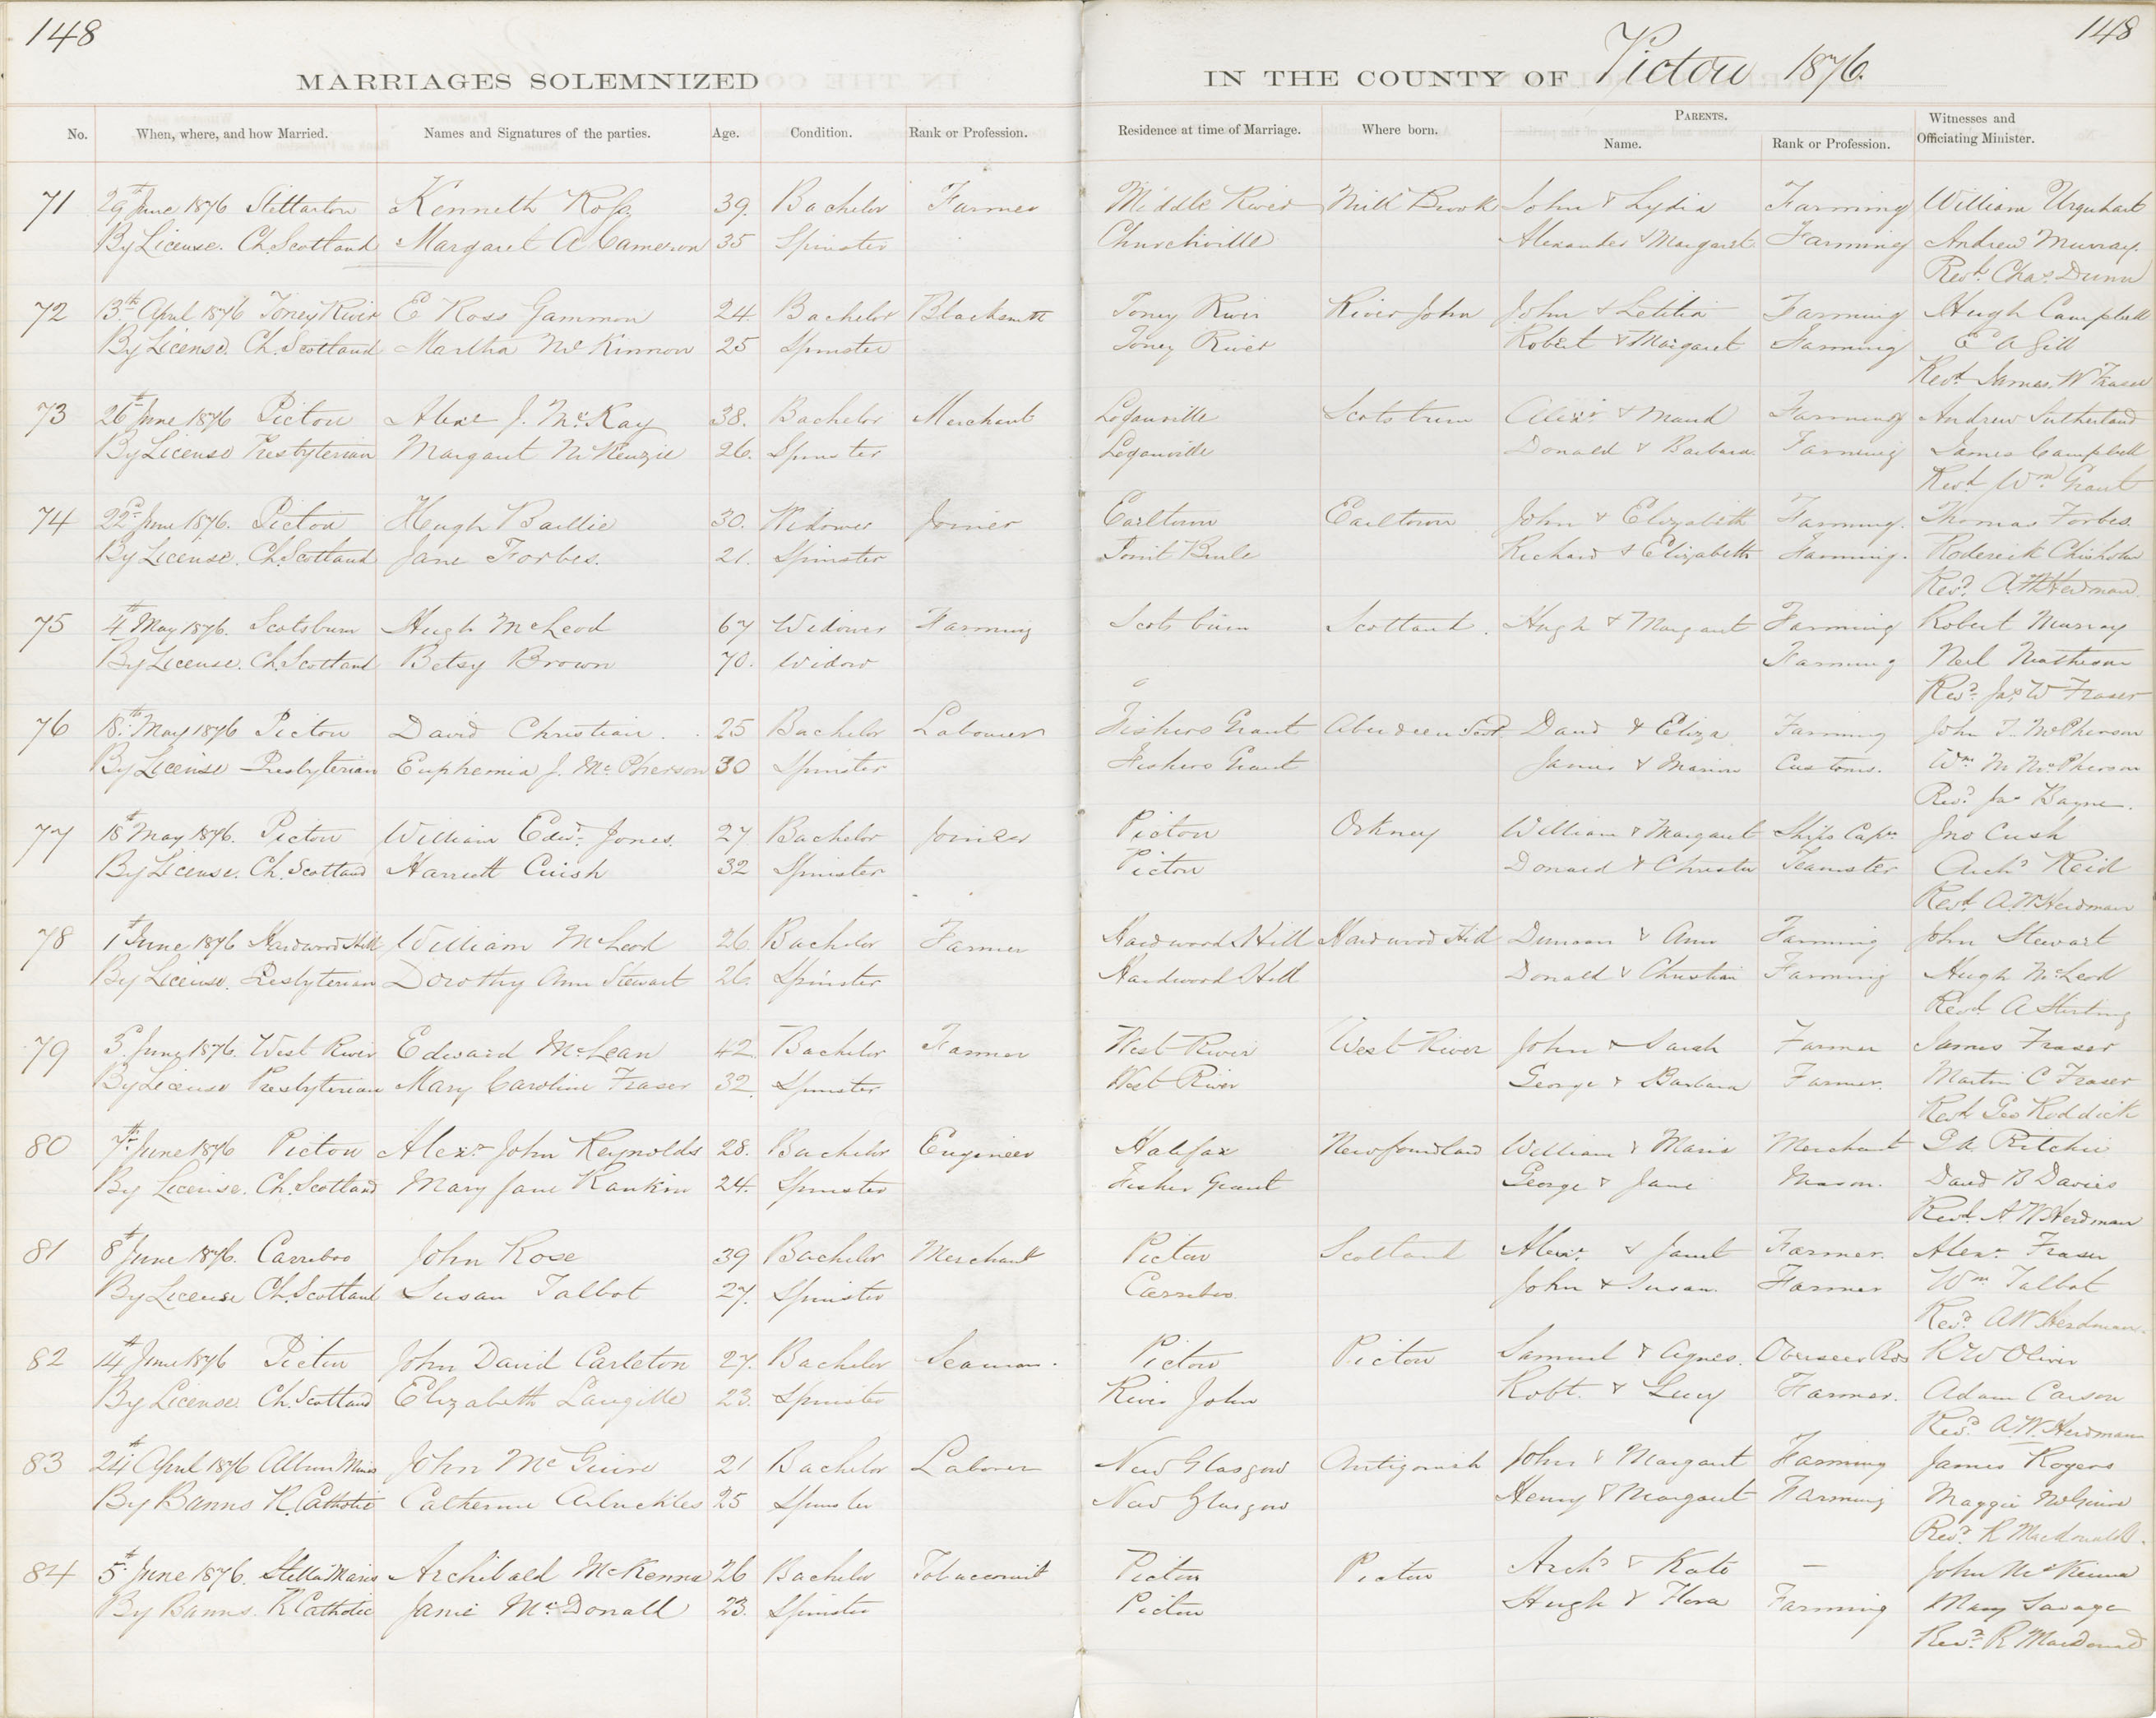 148
148
MARRIAGES SOLEMNIZED IN THE COUNTY OF Pictou 1876.
No. When, where, and how Married. Names and Signatures of the parties. Age. Condition. Rank or Profession. Residence at time of Marriage. Where born. PARENTS. Name. Rank or Profession. Witnesses and Officiating Minister.
71 29th June 1876 Stellarton Kenneth Ross 39. Bachelor Farmer Middle River Mill Brook John & Lydia Farming William Urquhart
By License. Ch. Scotland Margaret A Cameron 35 Spinster Churchville Alexander & Margaret Farming Andrew Murray.
Revd. Chas Dunn
72 13th April 1876 Toney River E Ross Gammon 24. Bachelor Blacksmith Toney River River John John & Letitia Farming Hugh Campbell
By License. Ch. Scotland Martha McKinnon 25 Spinster Toney River Robert & Margaret Farming E A Gill
Revd. James W Fraser
73 26th June 1876 Pictou Alexr J. McKay 38. Bachelor Merchant Loganville Scotsburn Alexr & Maud Farming Andrew Sutherland
By License Presbyterian Margaret McKenzie 26. Spinster Loganville Donald & Barbara Farming James Campbell
Revd. Wm Grant
74 22nd June 1876. Pictou Hugh Baillie 30. Widower Joiner Earltown Earltown John & Elizabeth Farming. Thomas Forbes.
By License. Ch. Scotland Jane Forbes. 21. Spinster Richard & Elizabeth Farming. Roderick Chisholm
Revd. A W Herdman.
75 4th May 1876. Scotsburn Hugh McLeod 67 Widower Farming Scotsburn Scotland. Hugh & Margaret Farming Robert Murray
By License. Ch. Scotland Betsy Brown 70. Widow Farming Neil Matheson
Revd. Jas W Fraser
76 18th May 1876 Pictou David Christian. 25 Bachelor Labourer Fishers Grant Aberdeen Scot David & Eliza Farming John T. McPherson
By License Presbyterian Euphemia J. McPherson 30 Spinster Fishers Grant James & Marion Customs. Wm M McPherson
Revd. Jas Bayne.
77 18th May 1876. Pictou William Edwd. Jones. 27 Bachelor Joiner Pictou Orkney William & Margaret Ships Captn. Jno Cush
By License. Ch. Scotland Harriett Cuish 32 Spinster Pictou Donald & Christie Teamster Archd Reid
Revd. A. W Herdman
78 1st June 1876 Hardwood Hill William McLeod 26 Bachelor Farmer Hardwood Hill Hardwood Hill Duncan & Ann Farming John Stewart
By License. Presbyterian Dorothy Ann Stewart 26. Spinster Hardwood Hill Donald & Christian Farming Hugh McLeod
Revd. A Stirling
79 June 1876. West River Edward McLean 42 Bachelor Farmer West River West River John & Sarah Farmer James Fraser
By License Presbyterian Mary Caroline Fraser 32. Spinster West River George & Barbara Farmer. Martin C Fraser
Revd. Geo Roddick
80 7th June 1876 Pictou Alexr John Reynolds 28. Bachelor Engineer Halifax Newfoundland William & Maria Merchant Ritchie
By License. Ch. Scotland Mary Jane Rankin 24. Spinster Fisher Grant George & Jane Mason. David B Davies
Revd. A W Herdman
81 8th June 1876. Carriboo John Rose 39 Bachelor Merchant Pictou Scotland Alexr. & Janet Farmer. Alexr Fraser
By License Ch. Scotland Susan Talbot 27. Spinster Carriboo. John & Susan. Farmer Wm Talbot
Revd. A W Herdman.
82 14th June 1876 Pictou John David Carleton 27. Bachelor Seaman. Pictou Pictou Samuel & Agnes. Overseer R W Oliver
By License. Ch. Scotland Elizabeth Langille 23. Spinster River John Robt. & Lucy Farmer. Adam Carson
Revd. A. W. Herdman
83 24th April 1876 Albion Mines John McGuire 21 Bachelor Laborer New Glasgow Antigonish John & Margaret Farming James Rogers
By Banns R. Catholic Catherine Arbuckles 25 Spinster New Glasgow Henry & Margaret Farming Maggie McGuire
Revd. R Macdonald.
84 5th June 1876. Stella Maris Archibald McKenna 26 Bachelor Tobacconist Pictou Pictou Archd & Kate — John McKenna
By Banns. R Catholic Janie McDonald 23. Spinster Pictou Hugh & Flora Farming Mary Savage
Revd. R Macdonald